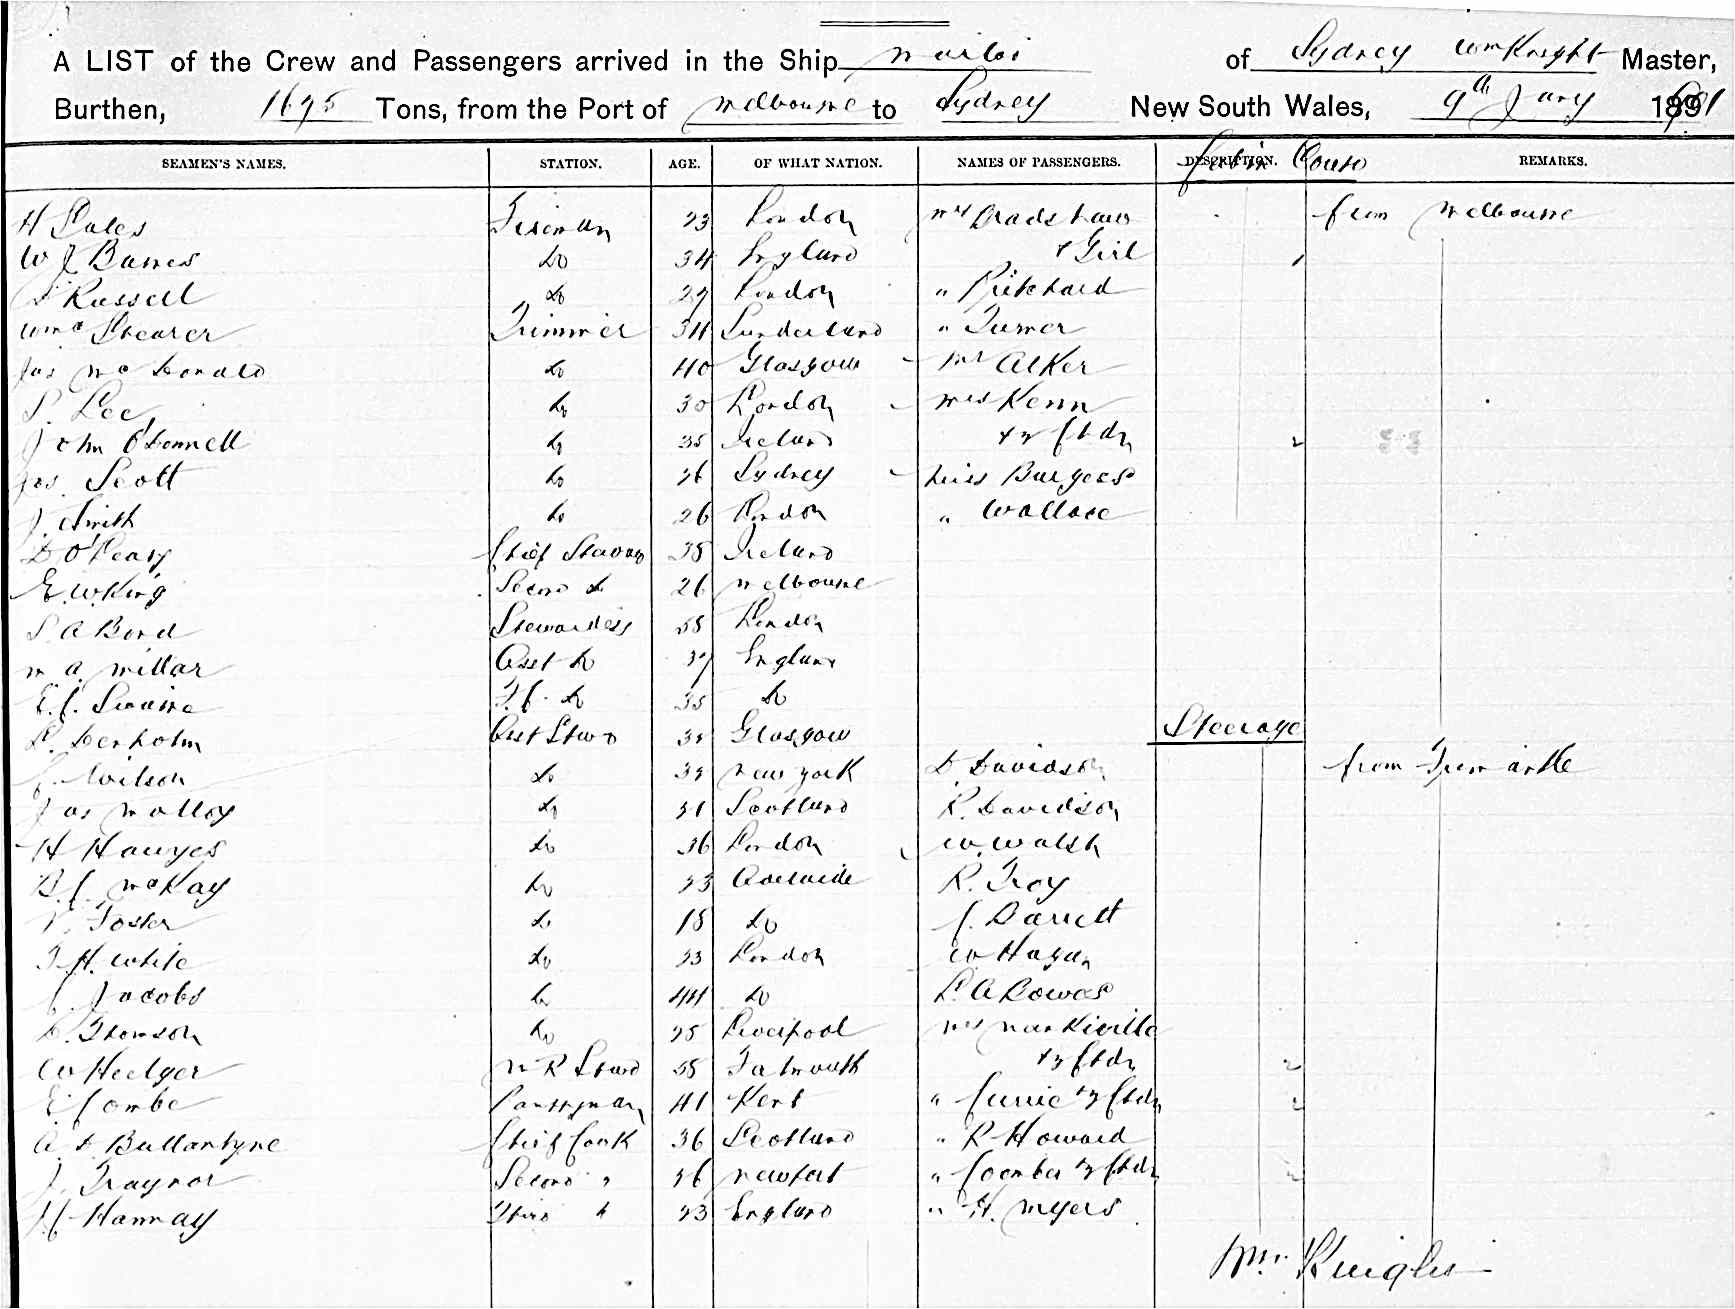 A LIST of the Crew and Passengers arrived in the Ship of Sydney Wm Knight Master,
Burthen, 1695 Tons, from the Port of Melbourne to Sydney New South Wales, 9th Jany 1901
SEAMEN'S NAMES. STATION. AGE. OF WHAT NATION. NAMES OF PASSENGERS. DESCRIPTION. REMARKS.
Cabin
H Fireman 23 London Mrs Bradshaw from Melbourne
W J Barnes Do 34 England & Girl 1
Russell Do 29 London " Pritchard
Wm Shearer Trimmer 34 Sunderland " Turner
Jas McDonald Do 40 Glasgow Mr Alker
S. Lee Do 30 London Mrs Kenn
John O'Donnell Do 35 Ireland & 2 Chdn 2
Jas Scott Do 26 Sydney Miss Burgess
J. Smith Do 26 London " Wallace
D O'Leary Chief Steward 35 Ireland
E. W. King Second Do 26 Melbourne
S A Bond Stewardess 38 London
M. A. Millar Asst Do 37 England
E. C. Swaine F.C. Do 35 Do
L. Denholm Asst Stwd Glasgow Steerage
C. Wilson Do 39 New York D. Davidson from Fremantle
Jas Malloy Do 31 Scotland R. Davidson
H Hawyes Do 36 London W. Walsh
B. C. McKay Do 23 Adelaide R. Troy
Foster Do 18 Do C. Barrett
T. H. White Do 23 London W Hagan
Jacobs Do 44 Do L. A Bowes
D. Thomson Do 25 Liverpool Mrs Mankiville
W Hedger M R Stwd 38 Falmouth & 2 Chdn 2
E. Combe Pantryman 41 Kent " Currie & 2 Chdn 2
A. D. Ballantyne Chief Cook 36 Scotland " R Howard
J. Traynor Second " 26 Newport " Coomber & 2 Chdn 2
Hannay Third " 23 England " H. Myers
Wm Knight